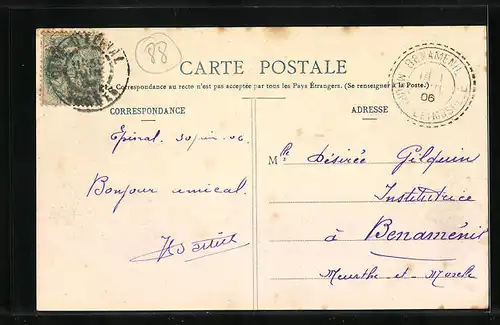 88
CARTE POSTALE
La Correspondance au recto n'est pas acceptée par tous les Pays Étrangers. (Se renseigner à la Poste.)
CORRESPONDANCE
ADRESSE
BENAMENIL
06
Epinal. 30 juin. 06.
Bonjour amical.
Mlle Désirée Gilquin
Institutrice
à Benaménil
Meurthe et Moselle